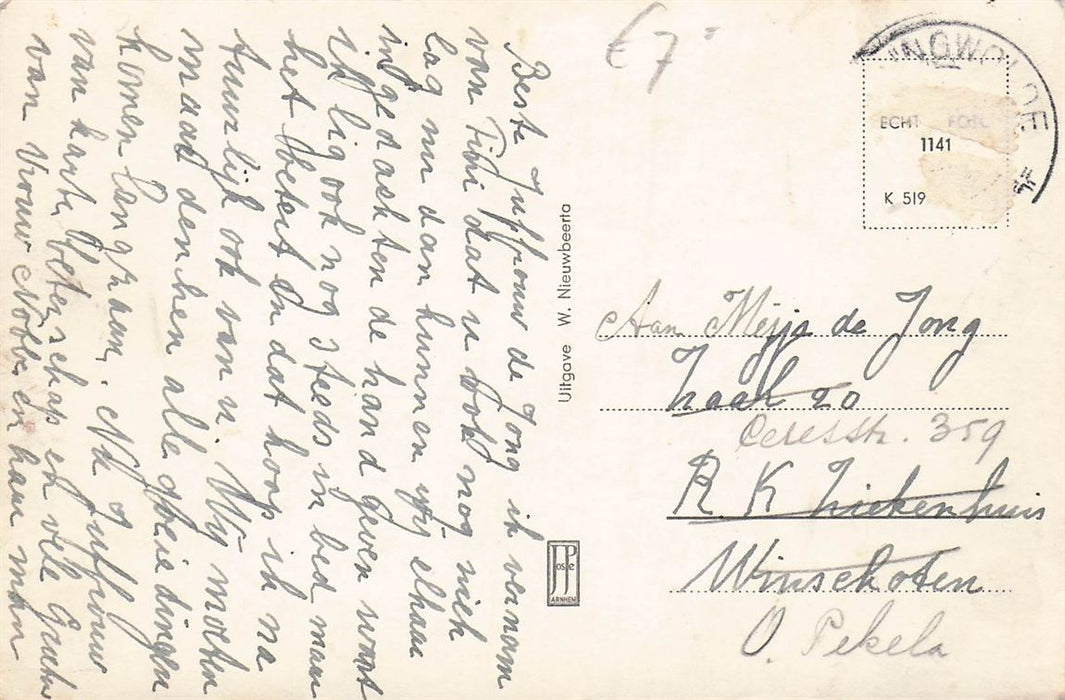 Beste Juffrouw de Jong ik vernam
van Fini dat u ook nog ziek
lag nu dan kunnen wij elkaar
in gedachten de hand geven want
ik lig ook nog steeds in bed maar
het betert en dat hoop ik na
tuurlijk ook van u. Wij moeten
maar denken alle goeie dingen
komen langzaam. Nk Juffrouw
van harte beterschap en vele Groeten
van Vrouw Nobbe en haar man
Uitgave W. Nieuwbeerta
JosPe
ARNHEM
€ 7-
INGWOLDE
ECHT FOTO
1141
K 519
Aan Mejj de Jong
Zaal 20
Ceresstr. 359
R. K Ziekenhuis
Winschoten
O. Pekela